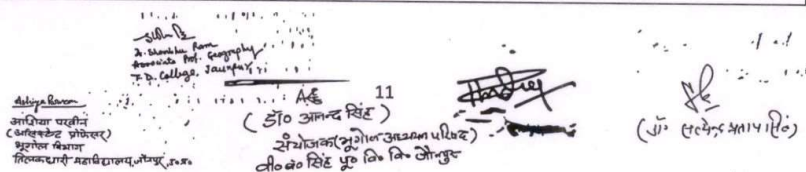 Dr. Shambhu Ram
Associate Prof. Geography
T.D. College, Jaunpur
11
आशिया परवीन
(असिस्टेन्ट प्रोफेसर)
भूगोल विभाग
तिलकधारी महाविद्यालय, जौनपुर, उ०प्र०
(डॉ० आनन्द सिंह)
संयोजक (भूगोल अध्ययन परिषद)
वी०ब० सिंह पू० वि० वि० जौनपुर
(डॉ० सत्येन्द्र प्रताप सिंह)